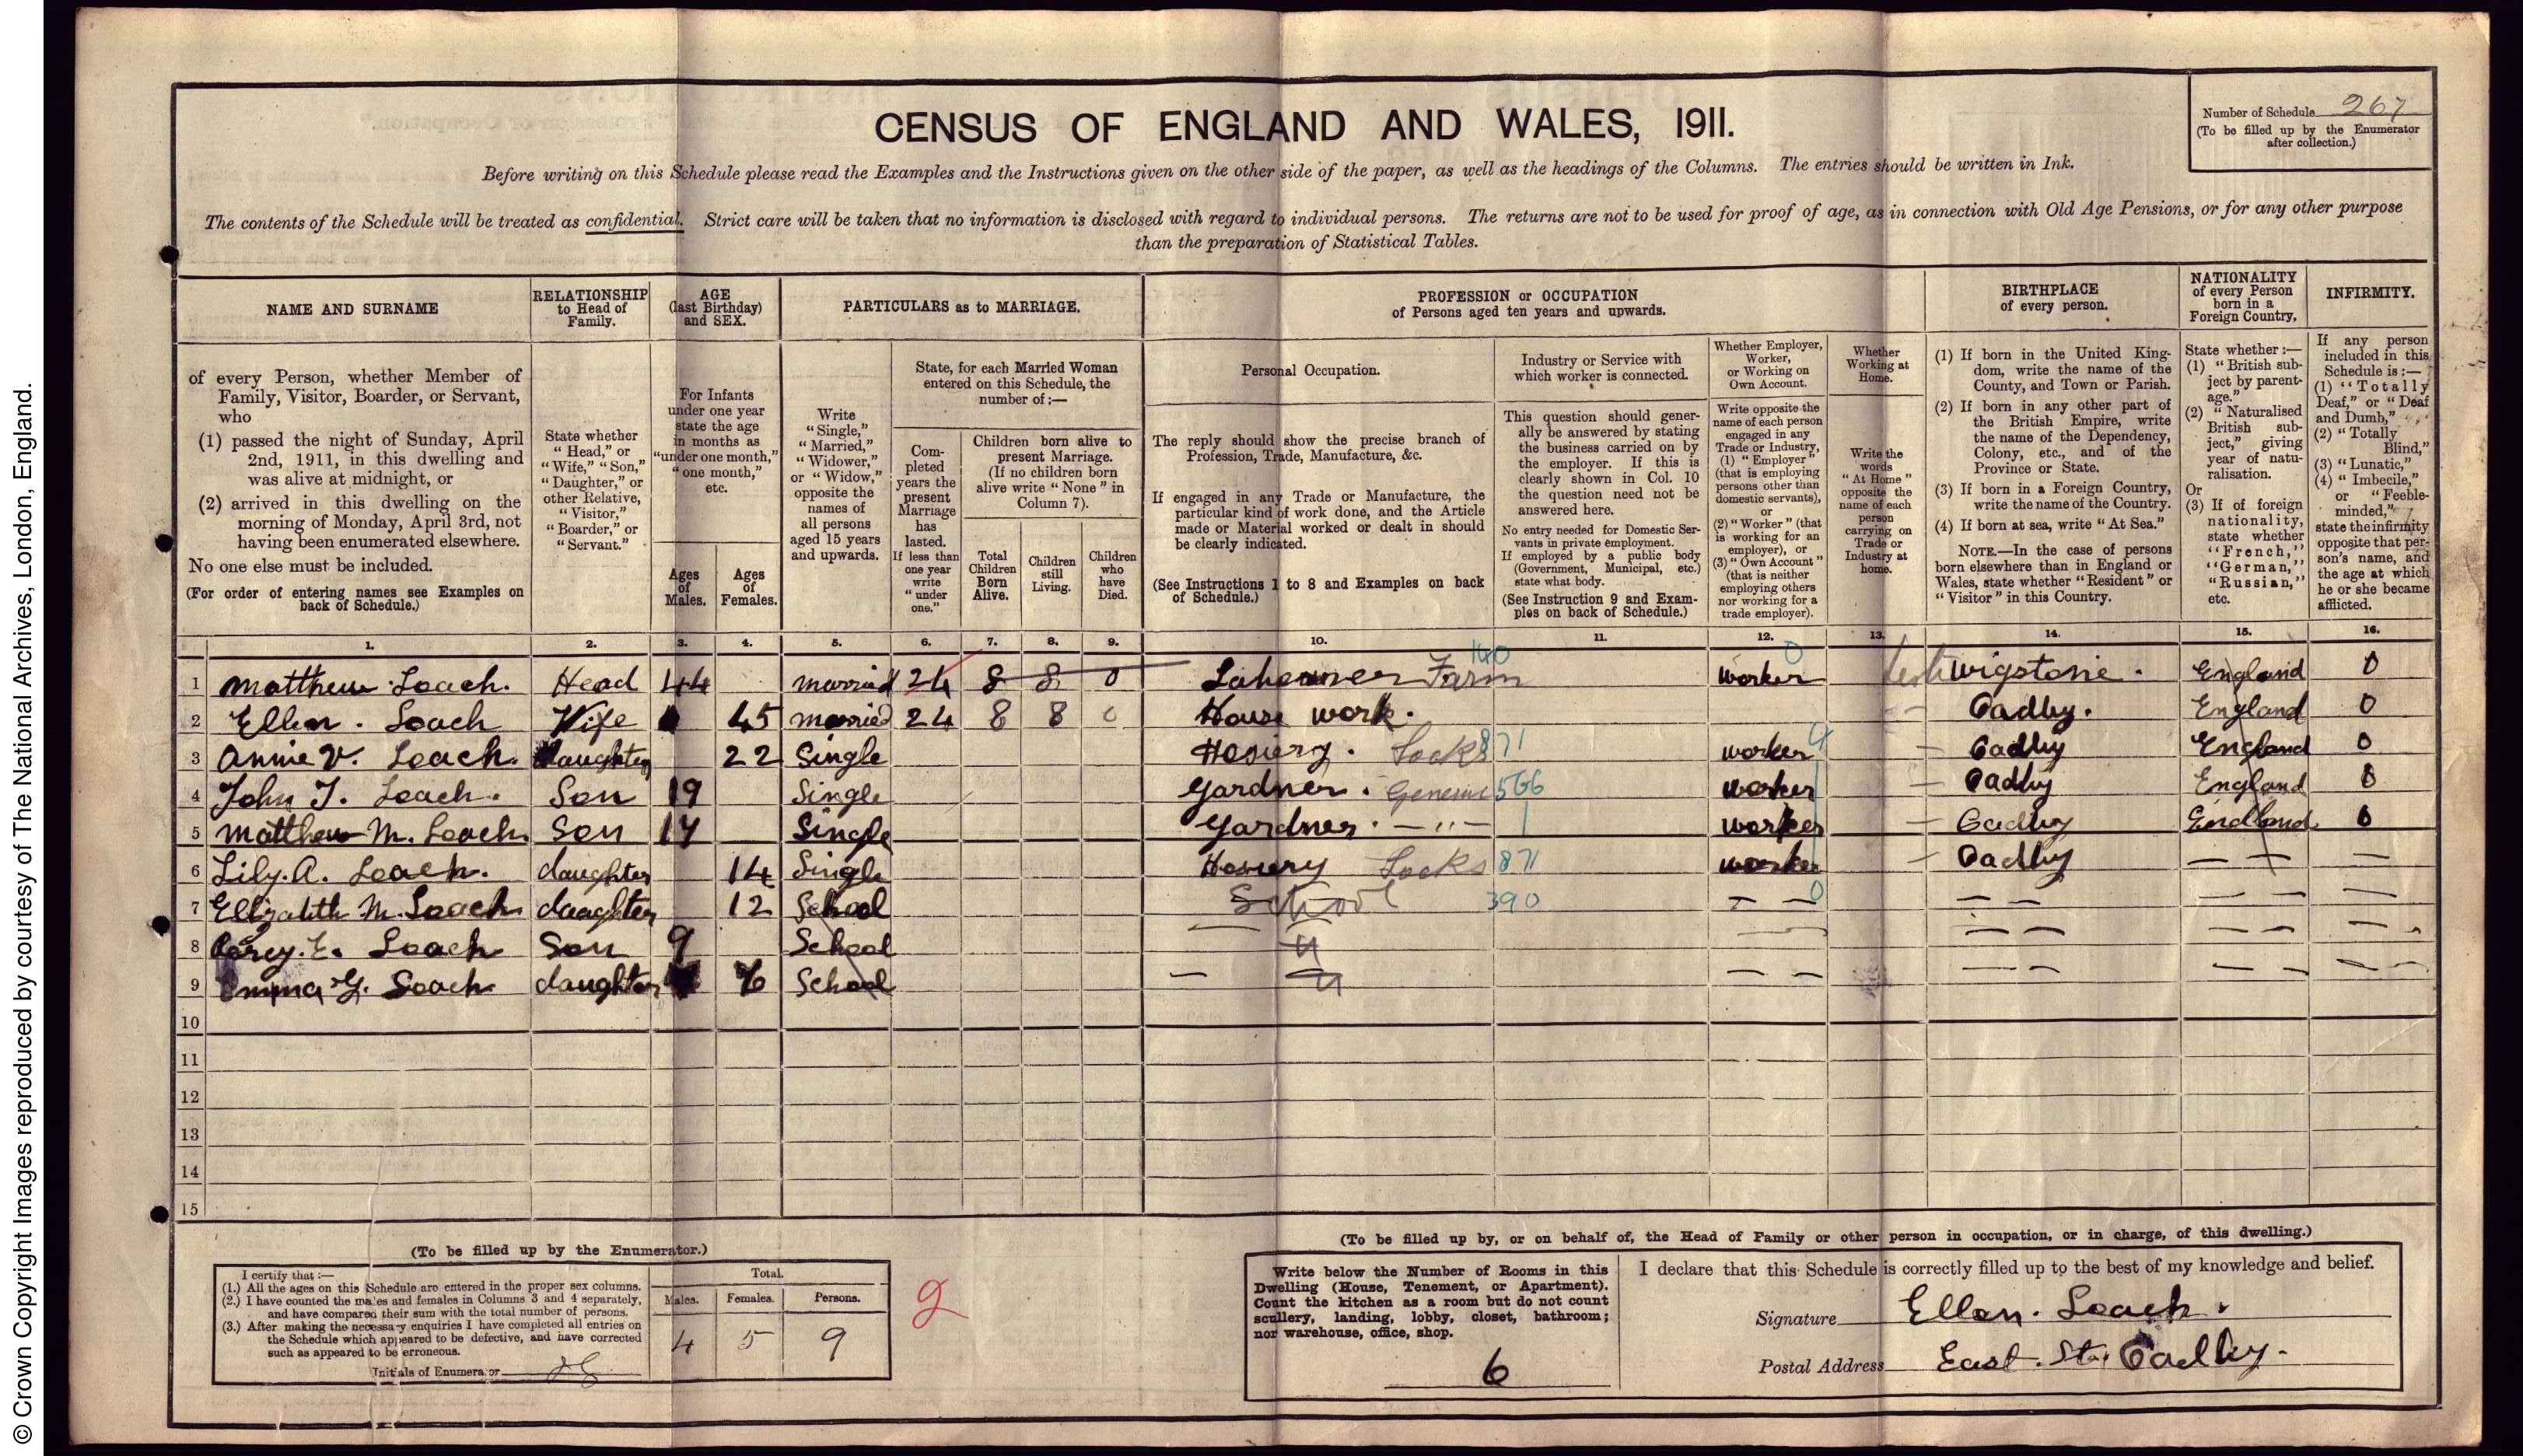 © Crown Copyright Images reproduced by courtesy of The National Archives, London, England.
CENSUS OF ENGLAND AND WALES, 1911.
Number of Schedule 267
(To be filled up by the Enumerator after collection.)
Before writing on this Schedule please read the Examples and the Instructions given on the other side of the paper, as well as the headings of the Columns. The entries should be written in Ink.
The contents of the Schedule will be treated as confidential. Strict care will be taken that no information is disclosed with regard to individual persons. The returns are not to be used for proof of age, as in connection with Old Age Pensions, or for any other purpose
than the preparation of Statistical Tables.
NAME AND SURNAME
of every Person, whether Member of Family, Visitor, Boarder, or Servant, who
(1) passed the night of Sunday, April 2nd, 1911, in this dwelling and was alive at midnight, or
(2) arrived in this dwelling on the morning of Monday, April 3rd, not having been enumerated elsewhere.
No one else must be included.
(For order of entering names see Examples on back of Schedule.)
RELATIONSHIP to Head of Family.
State whether "Head," or "Wife," "Son," "Daughter," or other Relative, "Visitor," "Boarder," or "Servant."
AGE (last Birthday) and SEX.
For Infants under one year state the age in months as "under one month," "one month," etc.
Ages of Males.
Ages of Females.
PARTICULARS as to MARRIAGE.
Write "Single," "Married," "Widower," or "Widow," opposite the names of all persons aged 15 years and upwards.
State, for each Married Woman entered on this Schedule, the number of :—
Completed years the present Marriage has lasted. If less than one year write "under one."
Children born alive to present Marriage. (If no children born alive write "None" in Column 7).
Total Children Born Alive.
Children still Living.
Children who have Died.
PROFESSION or OCCUPATION of Persons aged ten years and upwards.
Personal Occupation.
The reply should show the precise branch of Profession, Trade, Manufacture, &c.
If engaged in any Trade or Manufacture, the particular kind of work done, and the Article made or Material worked or dealt in should be clearly indicated.
(See Instructions 1 to 8 and Examples on back of Schedule.)
Industry or Service with which worker is connected.
This question should generally be answered by stating the business carried on by the employer. If this is clearly shown in Col. 10 the question need not be answered here.
No entry needed for Domestic Servants in private employment.
If employed by a public body (Government, Municipal, etc.) state what body.
(See Instruction 9 and Examples on back of Schedule.)
Whether Employer, Worker, or Working on Own Account.
Write opposite the name of each person engaged in any Trade or Industry, (1) "Employer" (that is employing persons other than domestic servants), or (2) "Worker" (that is working for an employer), or (3) "Own Account" (that is neither employing others nor working for a trade employer).
Whether Working at Home.
Write the words "At Home" opposite the name of each person carrying on Trade or Industry at home.
BIRTHPLACE of every person.
(1) If born in the United Kingdom, write the name of the County, and Town or Parish.
(2) If born in any other part of the British Empire, write the name of the Dependency, Colony, etc., and of the Province or State.
(3) If born in a Foreign Country, write the name of the Country.
(4) If born at sea, write "At Sea."
NOTE.—In the case of persons born elsewhere than in England or Wales, state whether "Resident" or "Visitor" in this Country.
NATIONALITY of every Person born in a Foreign Country.
State whether :—
(1) "British subject by parentage."
(2) "Naturalised British subject," giving year of naturalisation.
Or
(3) If of foreign nationality, state whether "French," "German," "Russian," etc.
INFIRMITY.
If any person included in this Schedule is :—
(1) "Totally Deaf," or "Deaf and Dumb,"
(2) "Totally Blind,"
(3) "Lunatic,"
(4) "Imbecile," or "Feeble-minded,"
state the infirmity opposite that person's name, and the age at which he or she became afflicted.
1. 2. 3. 4. 5. 6. 7. 8. 9. 10. 11. 12. 13. 14. 15. 16.
1 Matthew Loach. Head 44 married 24 8 8 0 Labourer Farm 140 worker 0 Wigstone. England 0
2 Ellen. Loach Wife 45 married 24 8 8 0 House work. Oadby. England 0
3 Annie V. Loach. daughter 22 Single Hosiery. Socks 871 worker 4 Oadby England 0
4 John T. Loach. Son 19 Single Gardner. General 566 worker Oadby England 0
5 Matthew M. Loach. Son 17 Single Gardner. — " — worker Oadby England. 0
6 Lily. A. Loach. daughter 14 Single Hosiery Socks 871 worker Oadby — — —
7 Elizabeth M. Loach daughter 12 School School 390 — — 0 — — — — — —
8 E. Loach Son 9 School — " — — — — — —
9 Emma G. Loach daughter 6 School — " — — — — — — — —
10
11
12
13
14
15
(To be filled up by the Enumerator.)
I certify that :—
(1.) All the ages on this Schedule are entered in the proper sex columns.
(2.) I have counted the males and females in Columns 3 and 4 separately, and have compared their sum with the total number of persons.
(3.) After making the necessary enquiries I have completed all entries on the Schedule which appeared to be defective, and have corrected such as appeared to be erroneous.
Initials of Enumerator
Total.
Males. Females. Persons.
4 5 9
(To be filled up by, or on behalf of, the Head of Family or other person in occupation, or in charge, of this dwelling.)
Write below the Number of Rooms in this Dwelling (House, Tenement, or Apartment). Count the kitchen as a room but do not count scullery, landing, lobby, closet, bathroom; nor warehouse, office, shop.
6
I declare that this Schedule is correctly filled up to the best of my knowledge and belief.
Signature Ellen. Loach.
Postal Address East. St. Oadby.